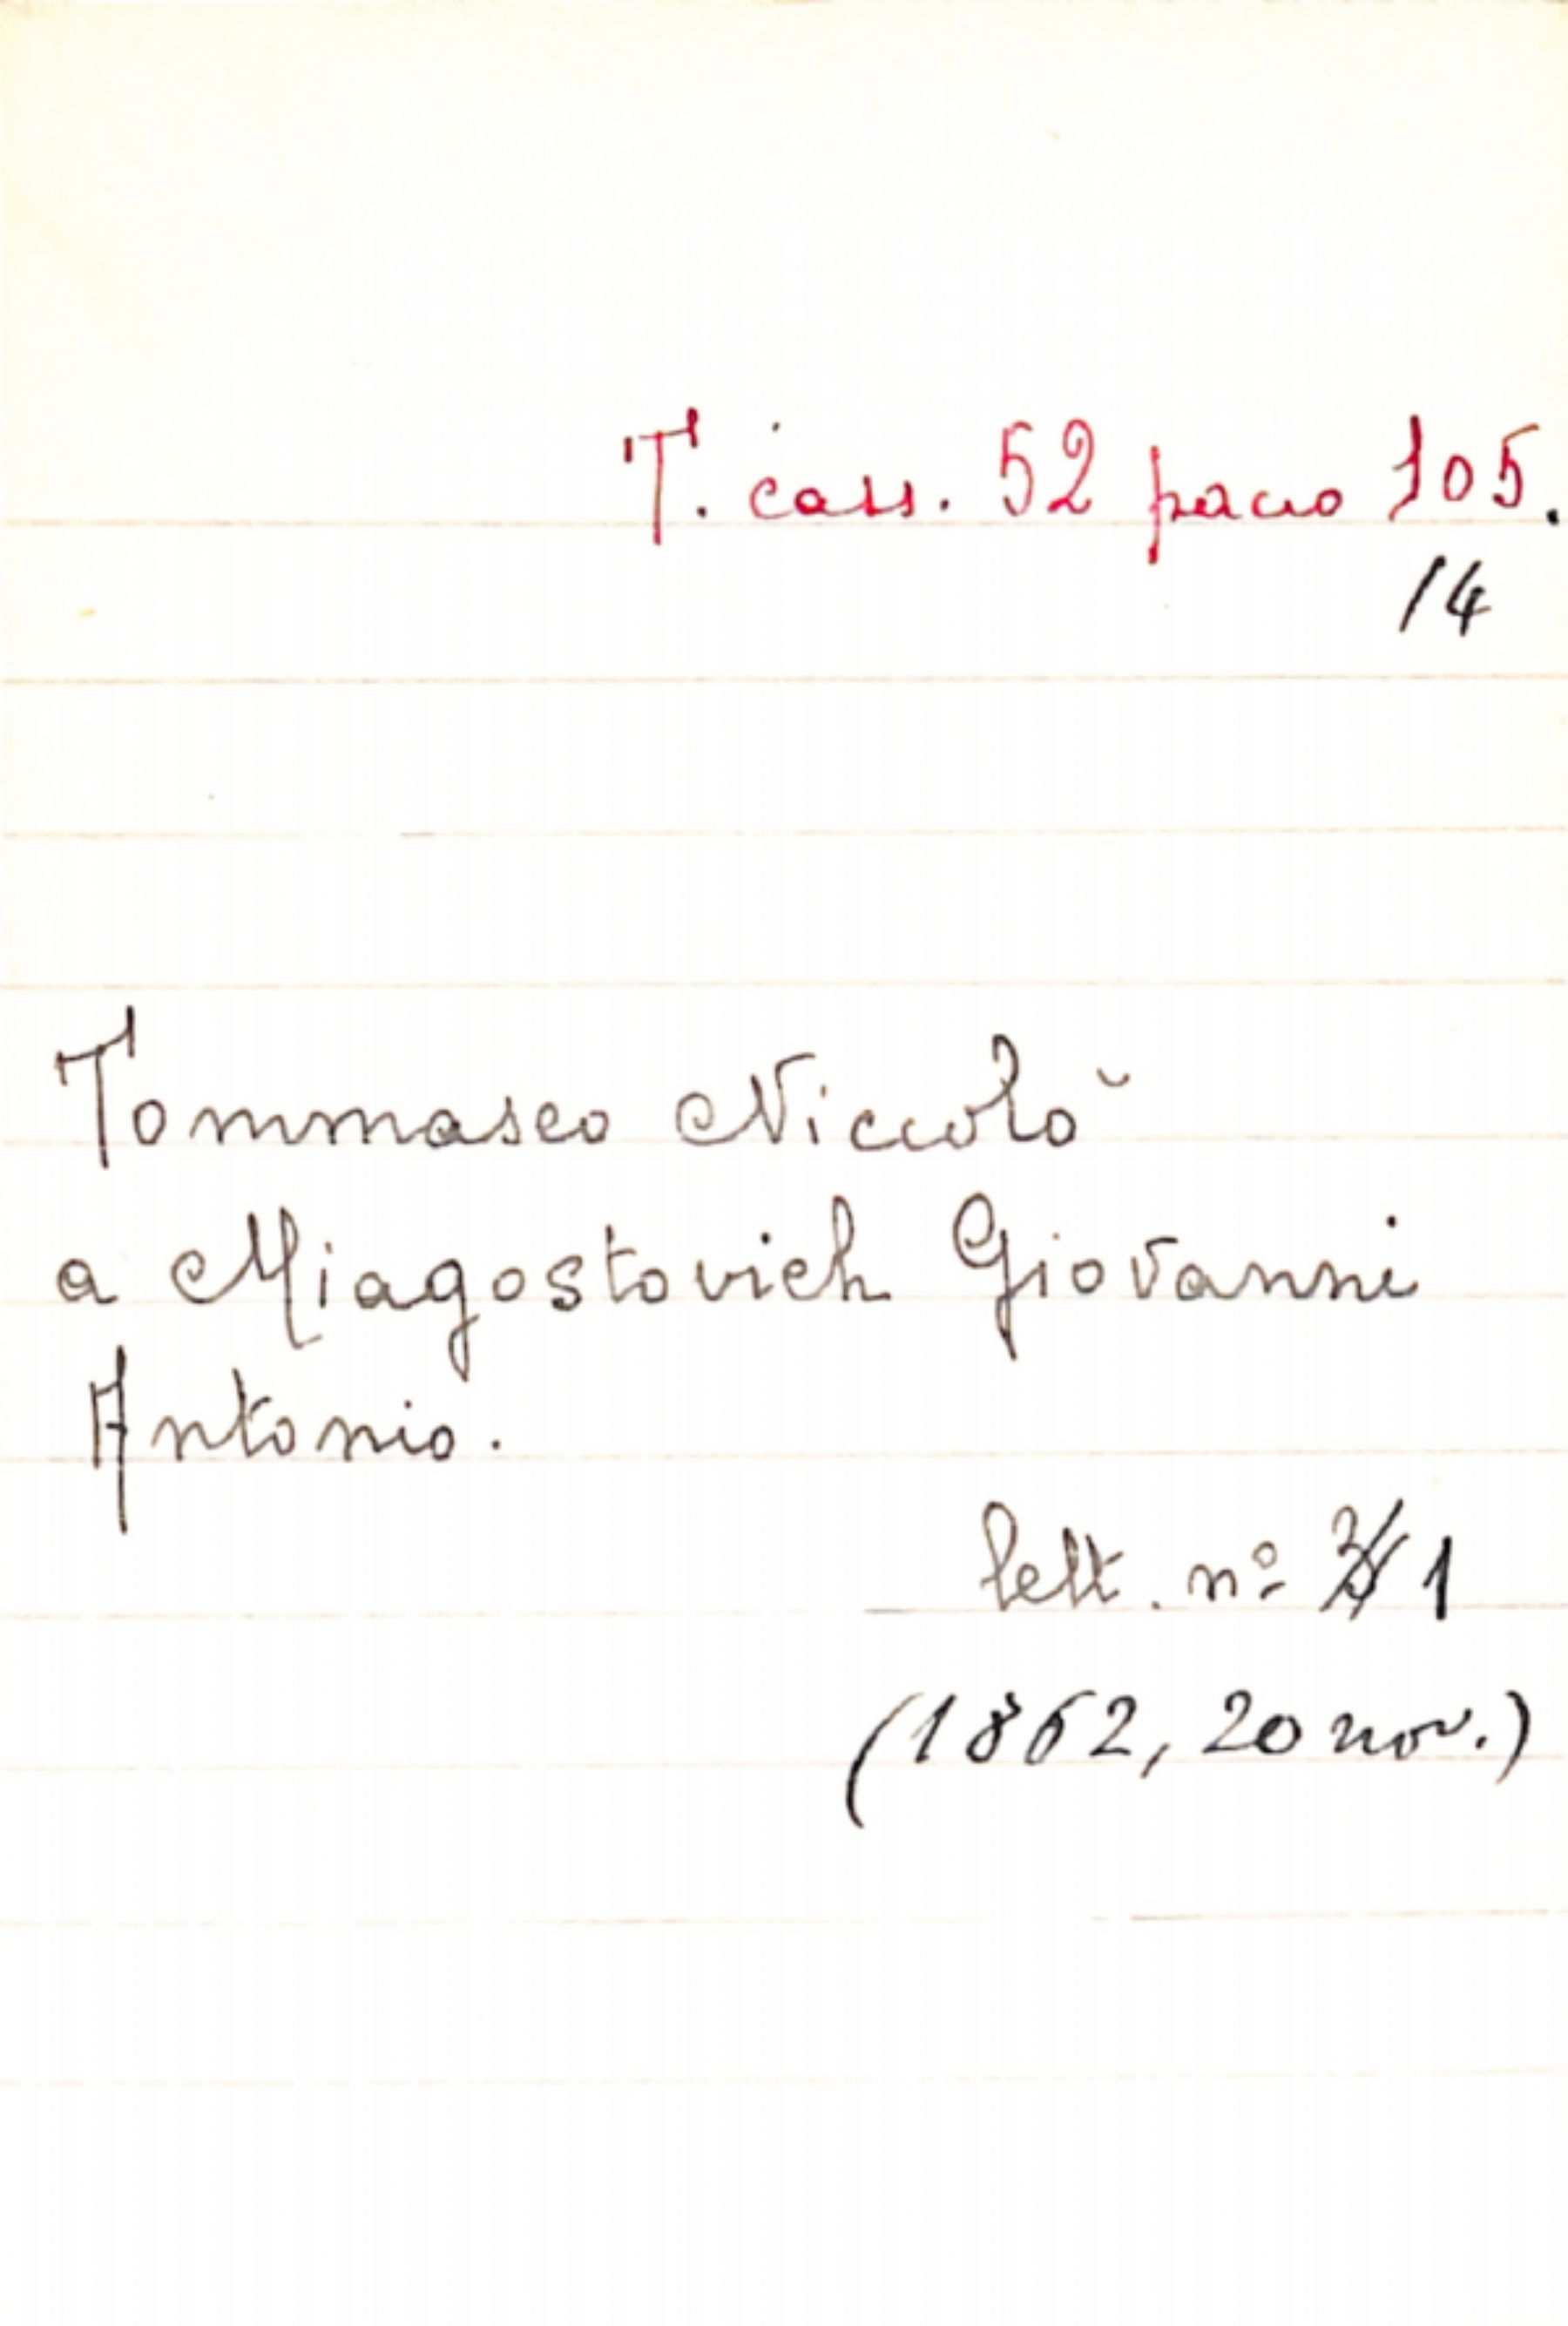 T. cass. 52 pacco 105.
14
Tommaseo Niccolò
a Miagostovich Giovanni
Antonio.
lett. nº 1
(1862, 20 nov.)